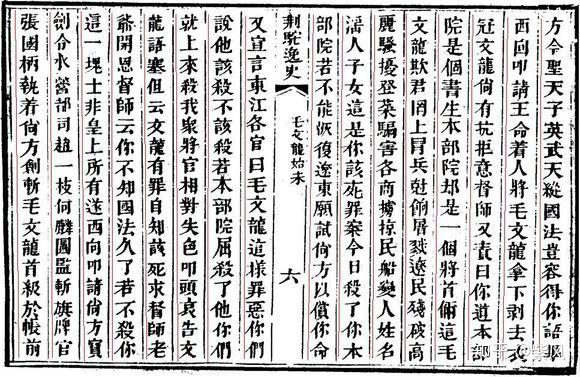 方今聖天子英武天縱國法豈容得你語畢
西向叩請王命着人將毛文龍拿下剥去衣
冠文龍尚有抗拒意督師又責曰你道本部
院是個書生本部院却是一個將首俑這毛
文龍欺君罔上冒兵尅餉屠戮遼民殘破高
麗騷擾登萊騙害各商擄掠民船變人姓名
淫人子女這是你該死罪案今日殺了你本
部院若不能恢復遼東願試尚方以償你命
荆駝逸史
毛文龍始末
六
又宣言東江各官曰毛文龍這樣罪惡你們
說他該殺不該殺若本部院屈殺了他你們
就上來殺我衆將官相對失色叩頭哀告文
龍語塞但云文龍有罪自知該死求督師老
爺開恩督師云你不知國法久了若不殺你
這一塊土非皇上所有遂西向叩請尚方寶
劍令水營都司趙一枝何麟圖監斬旗牌官
張國柄執着尚方劍斬毛文龍首級於帳前